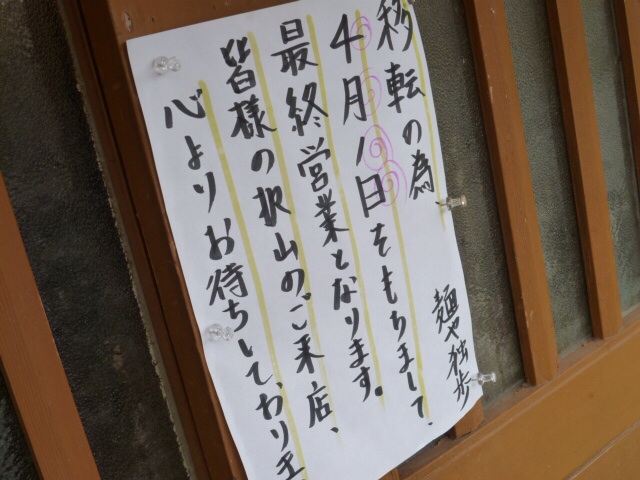 移転の為、
4月19日をもちまして、
最終営業となります。
皆様の沢山のご来店、
心よりお待ちしております
麺や独歩